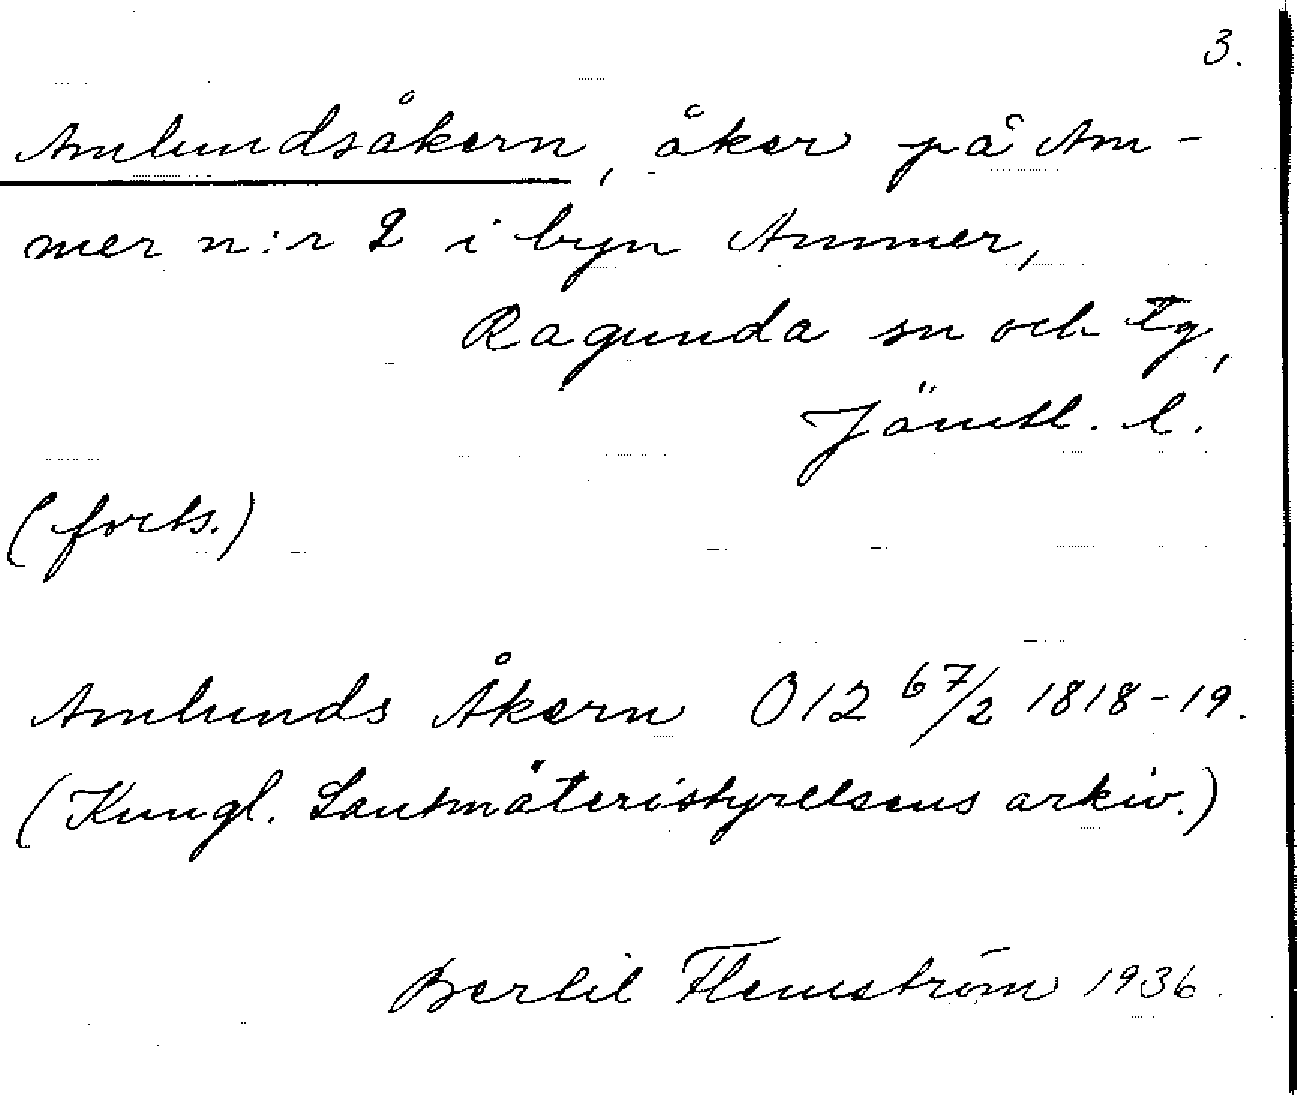 3.
Amlundsåkern, åker på Am-
mer n:r 2 i byn Ammer,
Ragunda sn och tg,
Jämtl. l.
(forts.)
Amlunds Åkern O12 67/2 1818-19.
(Kungl. Lantmäteristyrelsens arkiv.)
Bertil Flemström 1936.